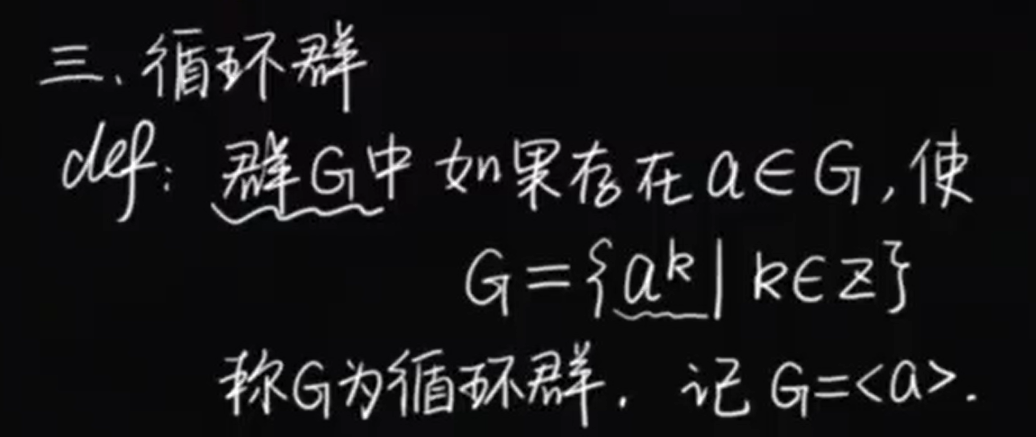 三.循环群
def: 群G中 如果存在 a∈G,使
G={aᵏ| k∈Z}
称G为循环群. 记 G=<a>.